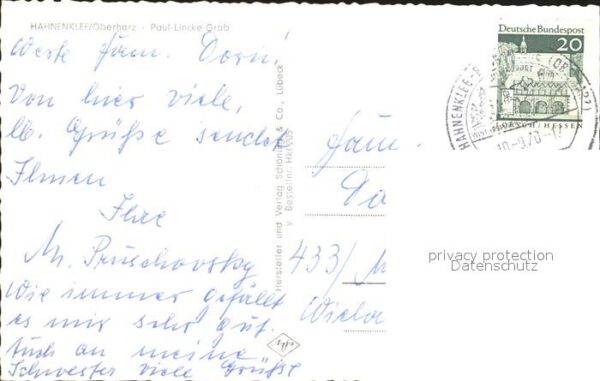 HAHNENKLEE/Oberharz · Paul-Lincke-Grab
Werte Fam. Dorn!
Von hier viele,
lb. Grüße sendet
Ihnen
Ihre
M. Pruschovsky
Wie immer gefällt
es mir sehr gut.
Auch an meine
Schwester viele Grüße
Hersteller und Verlag Schöning & Co., Lübeck
Deutsche Bundespost
20
LORSCH / HESSEN
HAHNENKLEE-
Fam.
Do
433/ M
privacy protection
Datenschutz